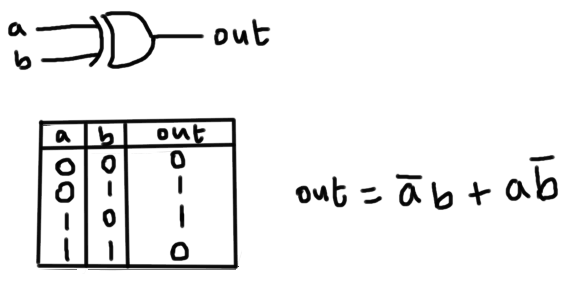 a out
b
a b out
0 0 0
0 1 1
1 0 1
1 1 0
out = a̅b + ab̅